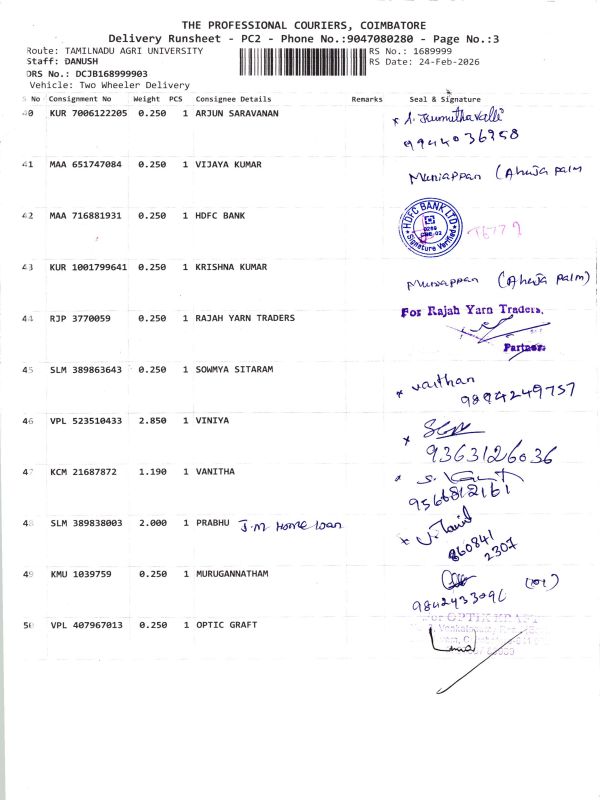 THE PROFESSIONAL COURIERS, COIMBATORE
Delivery Runsheet - PC2 - Phone No.:9047080280 - Page No.:3
Route: TAMILNADU AGRI UNIVERSITY
RS No.: 1689999
Staff: DANUSH
RS Date: 24-Feb-2026
DRS No.: DCJB168999903
Vehicle: Two Wheeler Delivery
S No Consignment No Weight PCS Consignee Details Remarks Seal & Signature
40 KUR 7006122205 0.250 1 ARJUN SARAVANAN
9944036958
41 MAA 651747084 0.250 1 VIJAYA KUMAR Muniappan (Ahuja palm
42 MAA 716881931 0.250 1 HDFC BANK
HDFC BANK LTD
Signature Verified
43 KUR 1001799641 0.250 1 KRISHNA KUMAR Muniappan (Ahuja palm)
44 RJP 3770059 0.250 1 RAJAH YARN TRADERS For Rajah Yarn Traders,
Partner.
45 SLM 389863643 0.250 1 SOWMYA SITARAM vaithan
9894249757
46 VPL 523510433 2.850 1 VINIYA
9363126036
47 KCM 21687872 1.190 1 VANITHA
9566812161
48 SLM 389838003 2.000 1 PRABHU J.M Home loan
860841
2307
49 KMU 1039759 0.250 1 MURUGANNATHAM
50 VPL 407967013 0.250 1 OPTIC GRAFT For OPTIK KRAFT